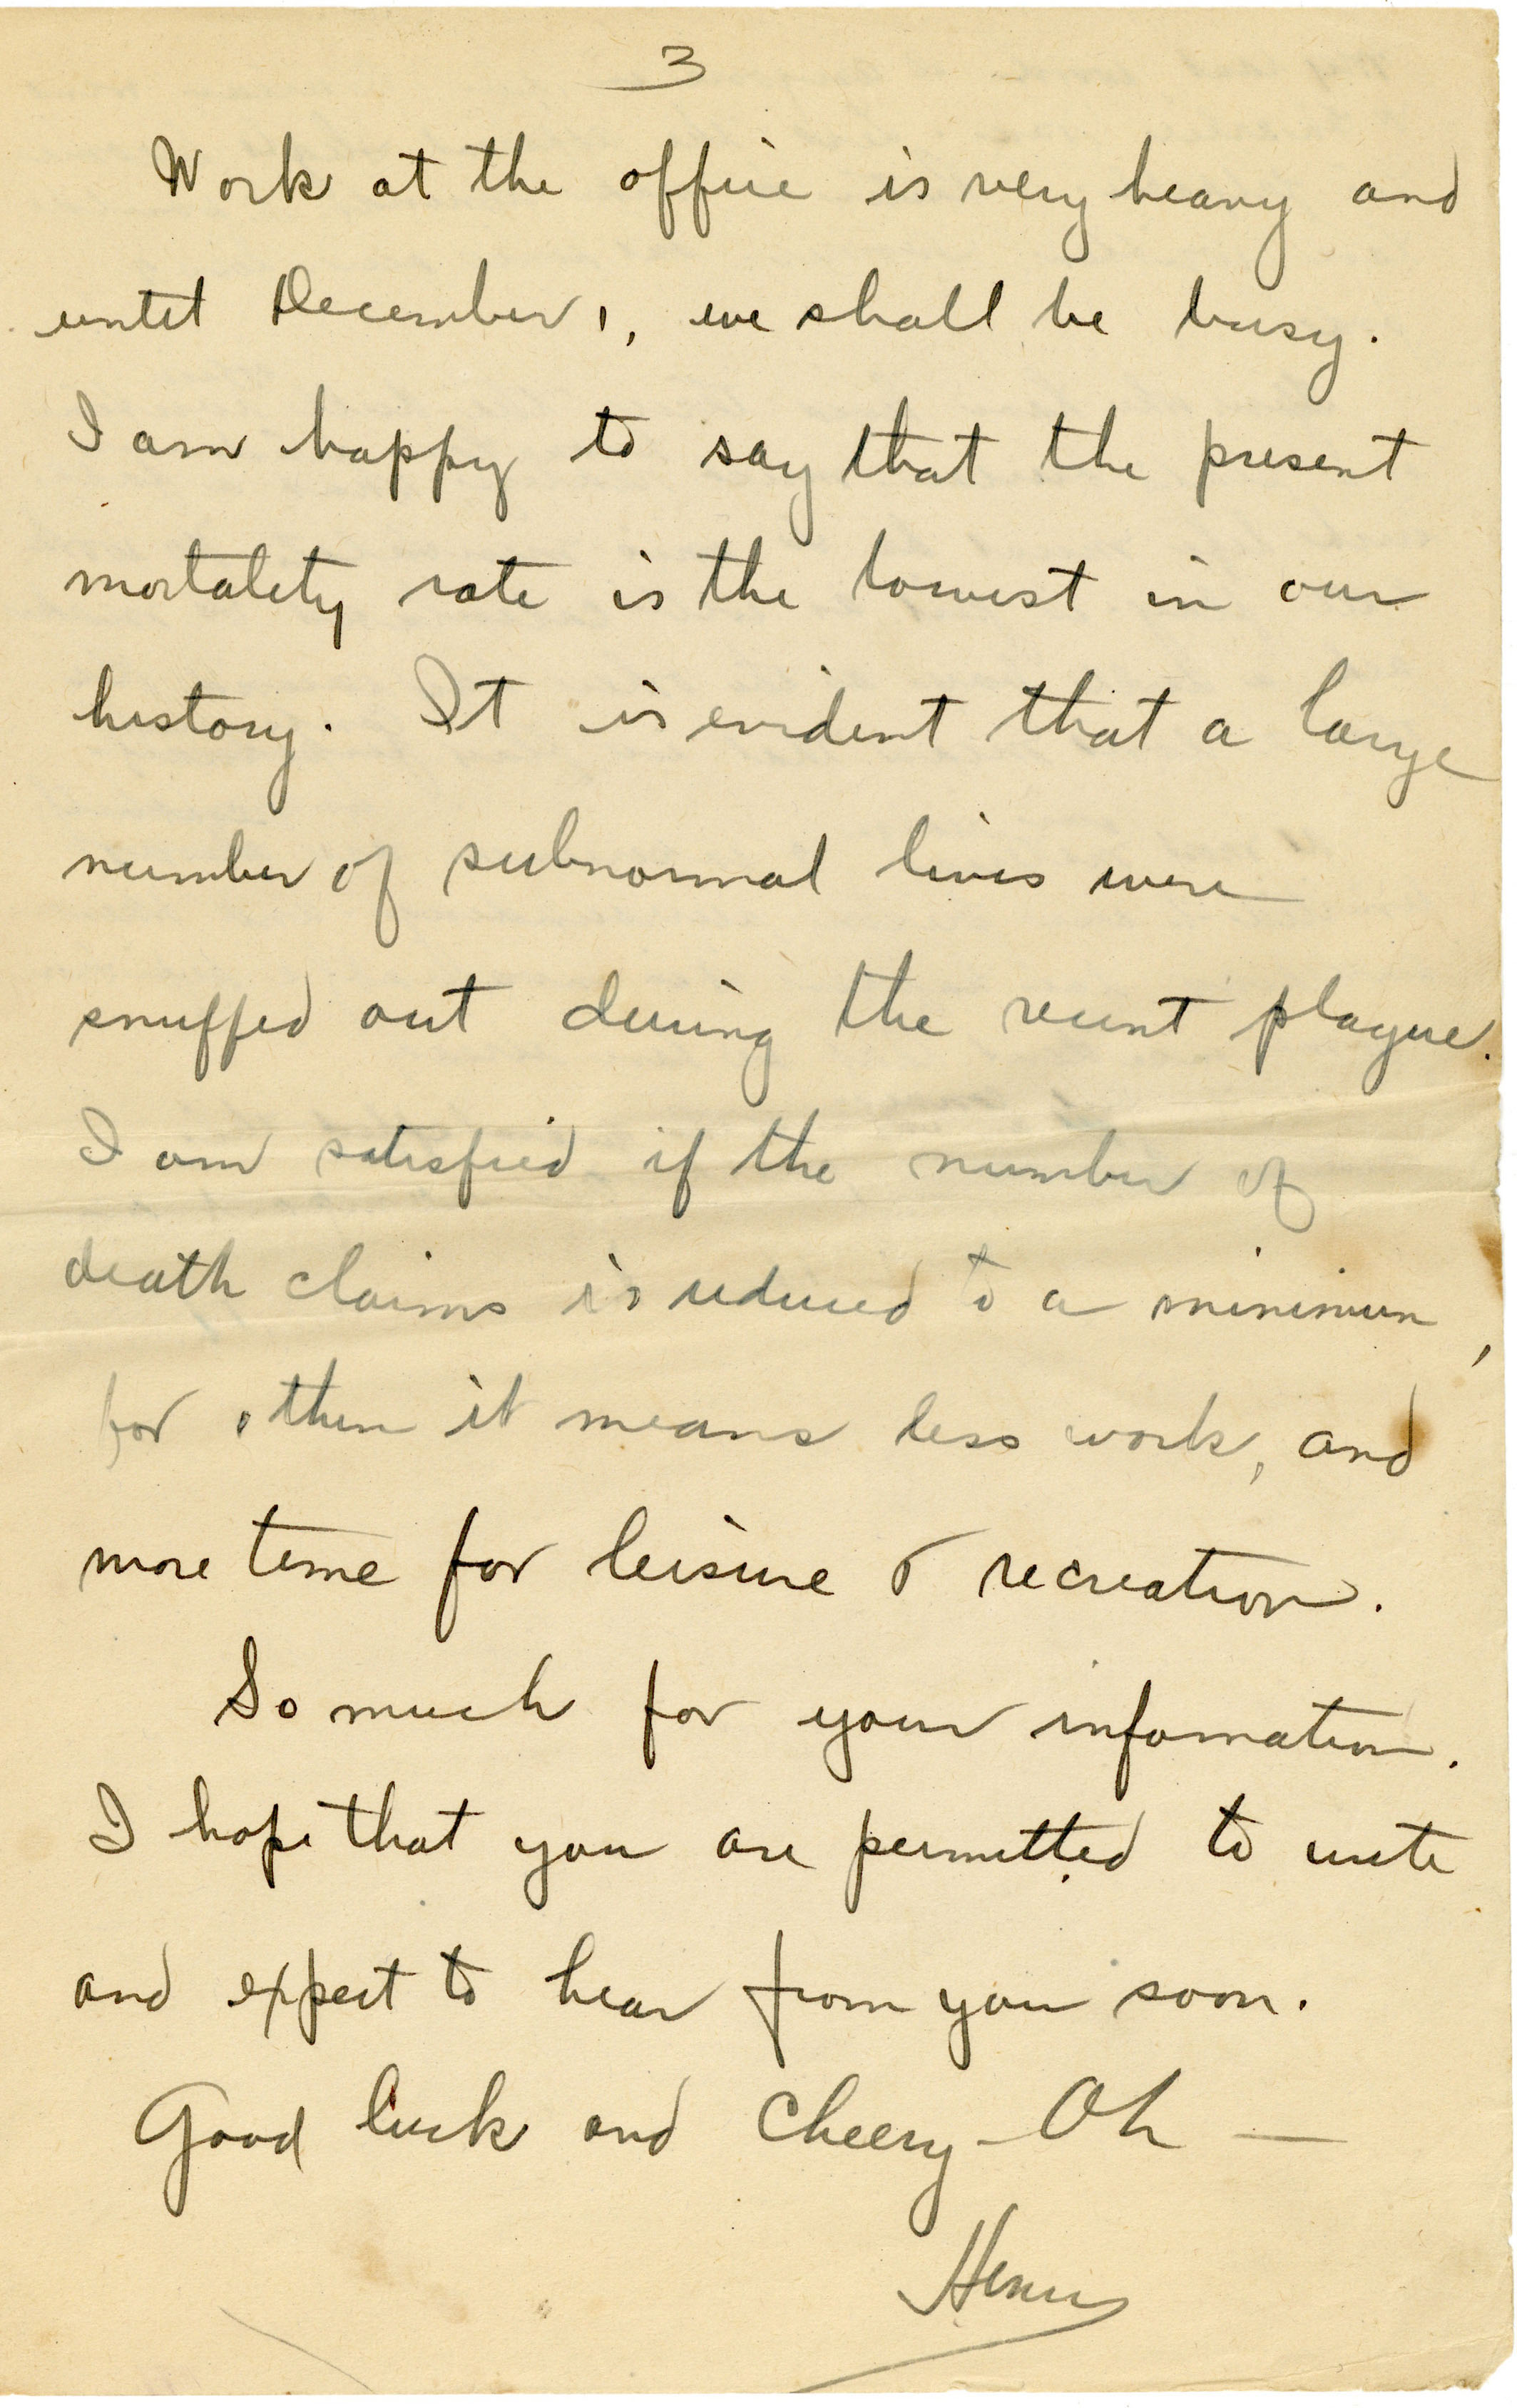 3
Work at the office is very heavy and
until December 1, we shall be busy.
I am happy to say that the present
mortality rate is the lowest in our
history. It is evident that a large
number of subnormal lives were
snuffed out during the recent plague.
I am satisfied if the number of
death claims is reduced to a minimum,
for then it means less work, and
more time for leisure & recreation.
So much for your information.
I hope that you are permitted to write
and expect to hear from you soon.
Good luck and Cheery-Oh —
Henry